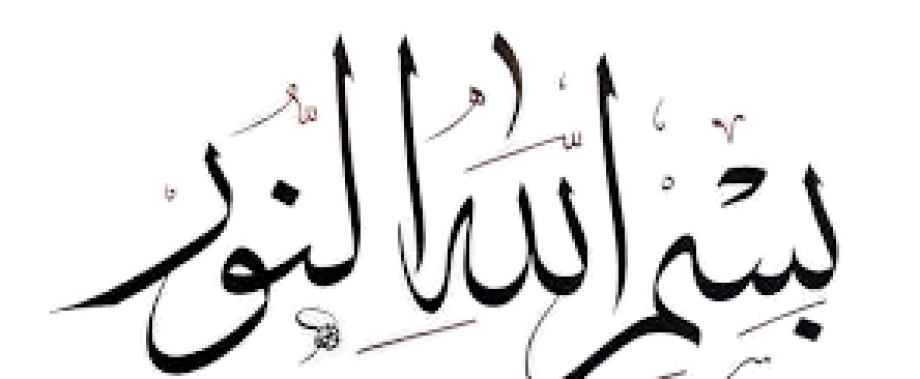 بسم الله النور